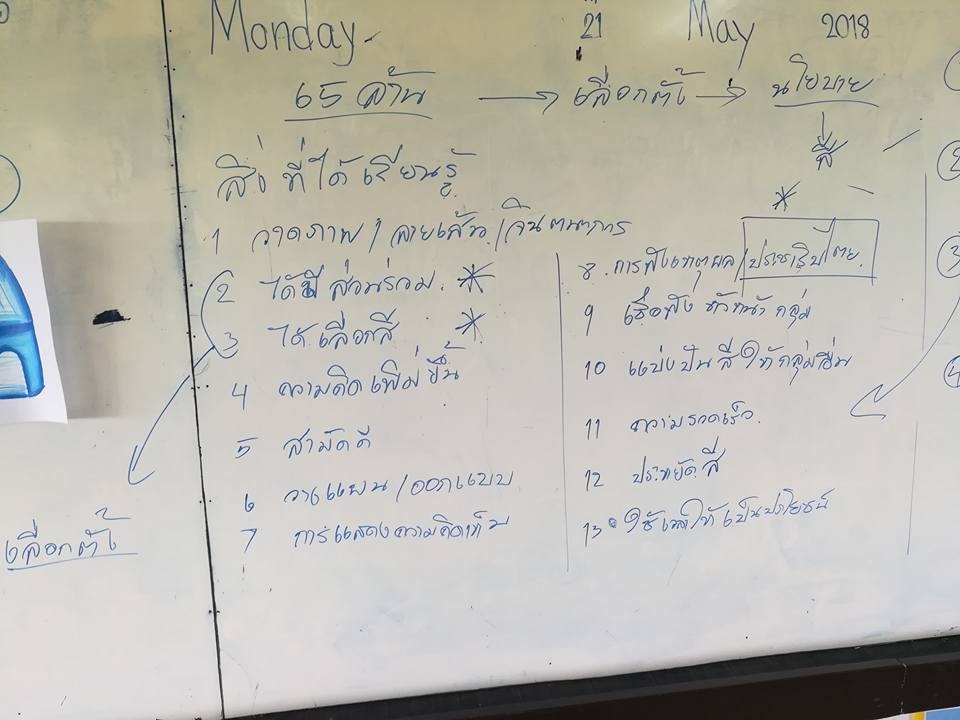 Monday 21 May 2018
65 ล้าน → เลือกตั้ง → นโยบาย
สี
สิ่งที่ได้เรียนรู้
1 วาดภาพ / ลายเส้น / จินตนาการ
2 ได้มีส่วนร่วม
3 ได้เลือกสี
4 ความคิดเพิ่มขึ้น
5 สามัคคี
6 วางแผน / ออกแบบ
7 การแสดงความคิดเห็น
8. การฟังเหตุผล / ประชาธิปไตย.
9 เชื่อฟัง หัวหน้ากลุ่ม
10 แบ่งปันสีให้กลุ่มอื่น
11 ความรวดเร็ว.
12 ประหยัดสี
13 ให้เป็นประโยชน์
เลือกตั้ง
2
3
4